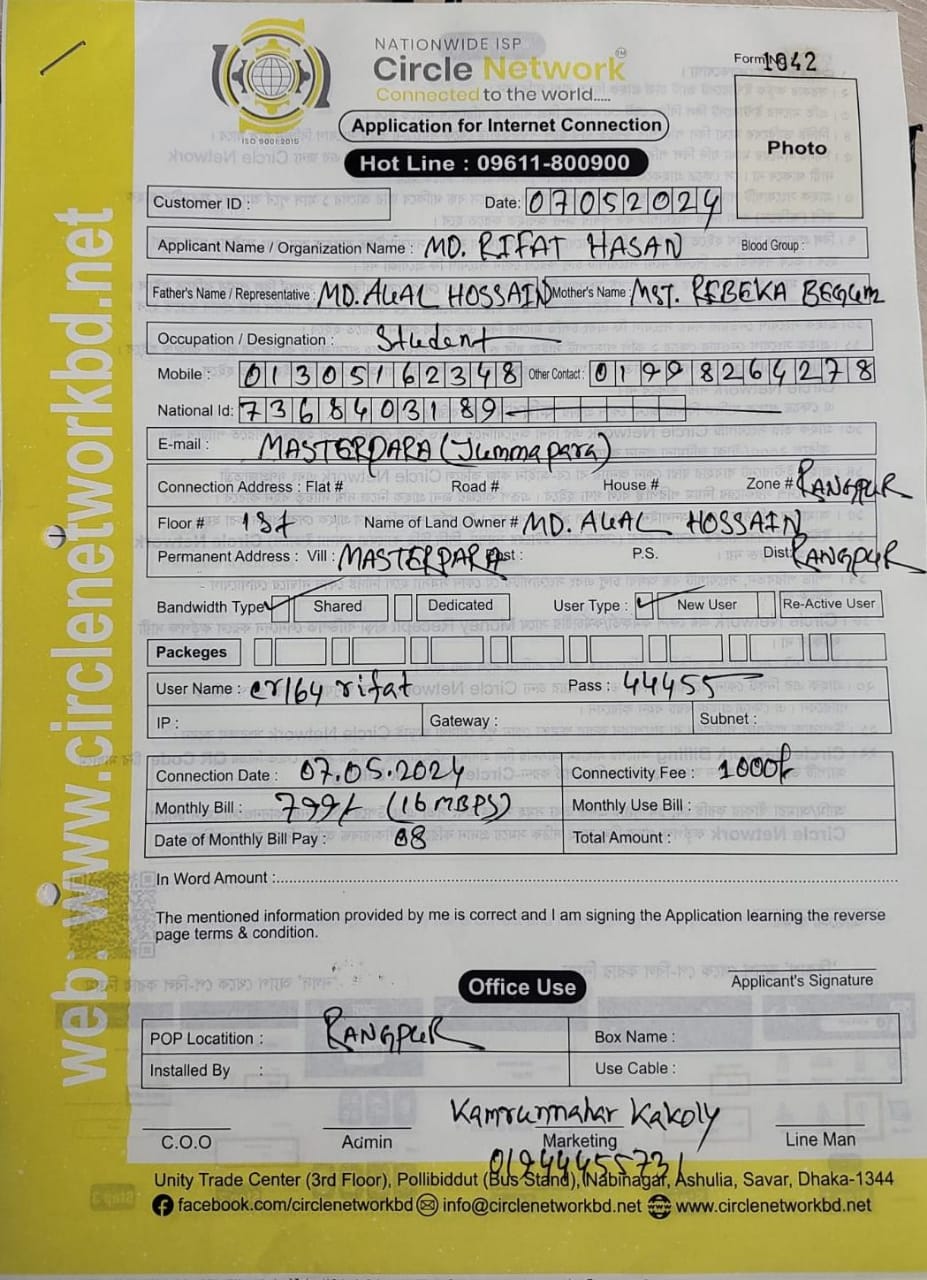 NATIONWIDE ISP
Circle Network
Connected to the world.....
ISO 9001:2015
Form No 1042
Application for Internet Connection
Hot Line : 09611-800900
Photo
web: www.circlenetworkbd.net
Customer ID :
Date: 07052024
Applicant Name / Organization Name : MD. RIFAT HASAN Blood Group :
Father's Name / Representative : MD. AUAL HOSSAIN Mother's Name : MST. REBEKA BEGUM
Occupation / Designation : Student
Mobile : 01305162348 Other Contact : 01998264278
National Id: 7368403189
E-mail : MASTERPARA (Jummapara)
Connection Address : Flat # Road # House # Zone # RANGPUR
Floor # 1st Name of Land Owner # MD. AUAL HOSSAIN
Permanent Address : Vill : MASTERPARA Post : P.S. Dist: RANGPUR
Bandwidth Type Shared Dedicated User Type : New User Re-Active User
Packeges
User Name : cr164 rifat Pass : 44455
IP : Gateway : Subnet :
Connection Date : 07.05.2024 Connectivity Fee : 1000/-
Monthly Bill : 799/- (16 MBPS) Monthly Use Bill :
Date of Monthly Bill Pay : 08 Total Amount :
In Word Amount :
The mentioned information provided by me is correct and I am signing the Application learning the reverse
page terms & condition.
Applicant's Signature
Office Use
POP Locatition : RANGPUR Box Name :
Installed By : Use Cable :
Kamrunnahar Kakoly
C.O.O Admin Marketing Line Man
Unity Trade Center (3rd Floor), Pollibiddut (Bus Stand), Nabinagar, Ashulia, Savar, Dhaka-1344
facebook.com/circlenetworkbd info@circlenetworkbd.net www.circlenetworkbd.net